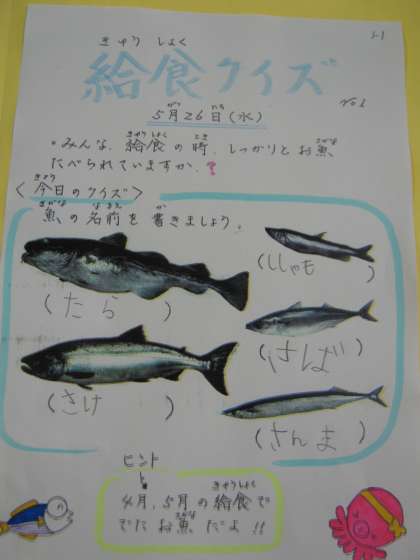 きゅう しょく
給食クイズ
5-1
No.1
がつ にち
5月26日(水)
きゅうしょく とき さかな
・みんな、給食の時、しっかりとお魚
たべられていますか?
きょう
〈今日のクイズ〉
さかな なまえ か
魚の名前を書きましょう。
(ししゃも)
(たら)
(さば)
(さけ)
(さんま)
ヒント
きゅうしょく
4月、5月の給食で
さかな
でたお魚だよ!!